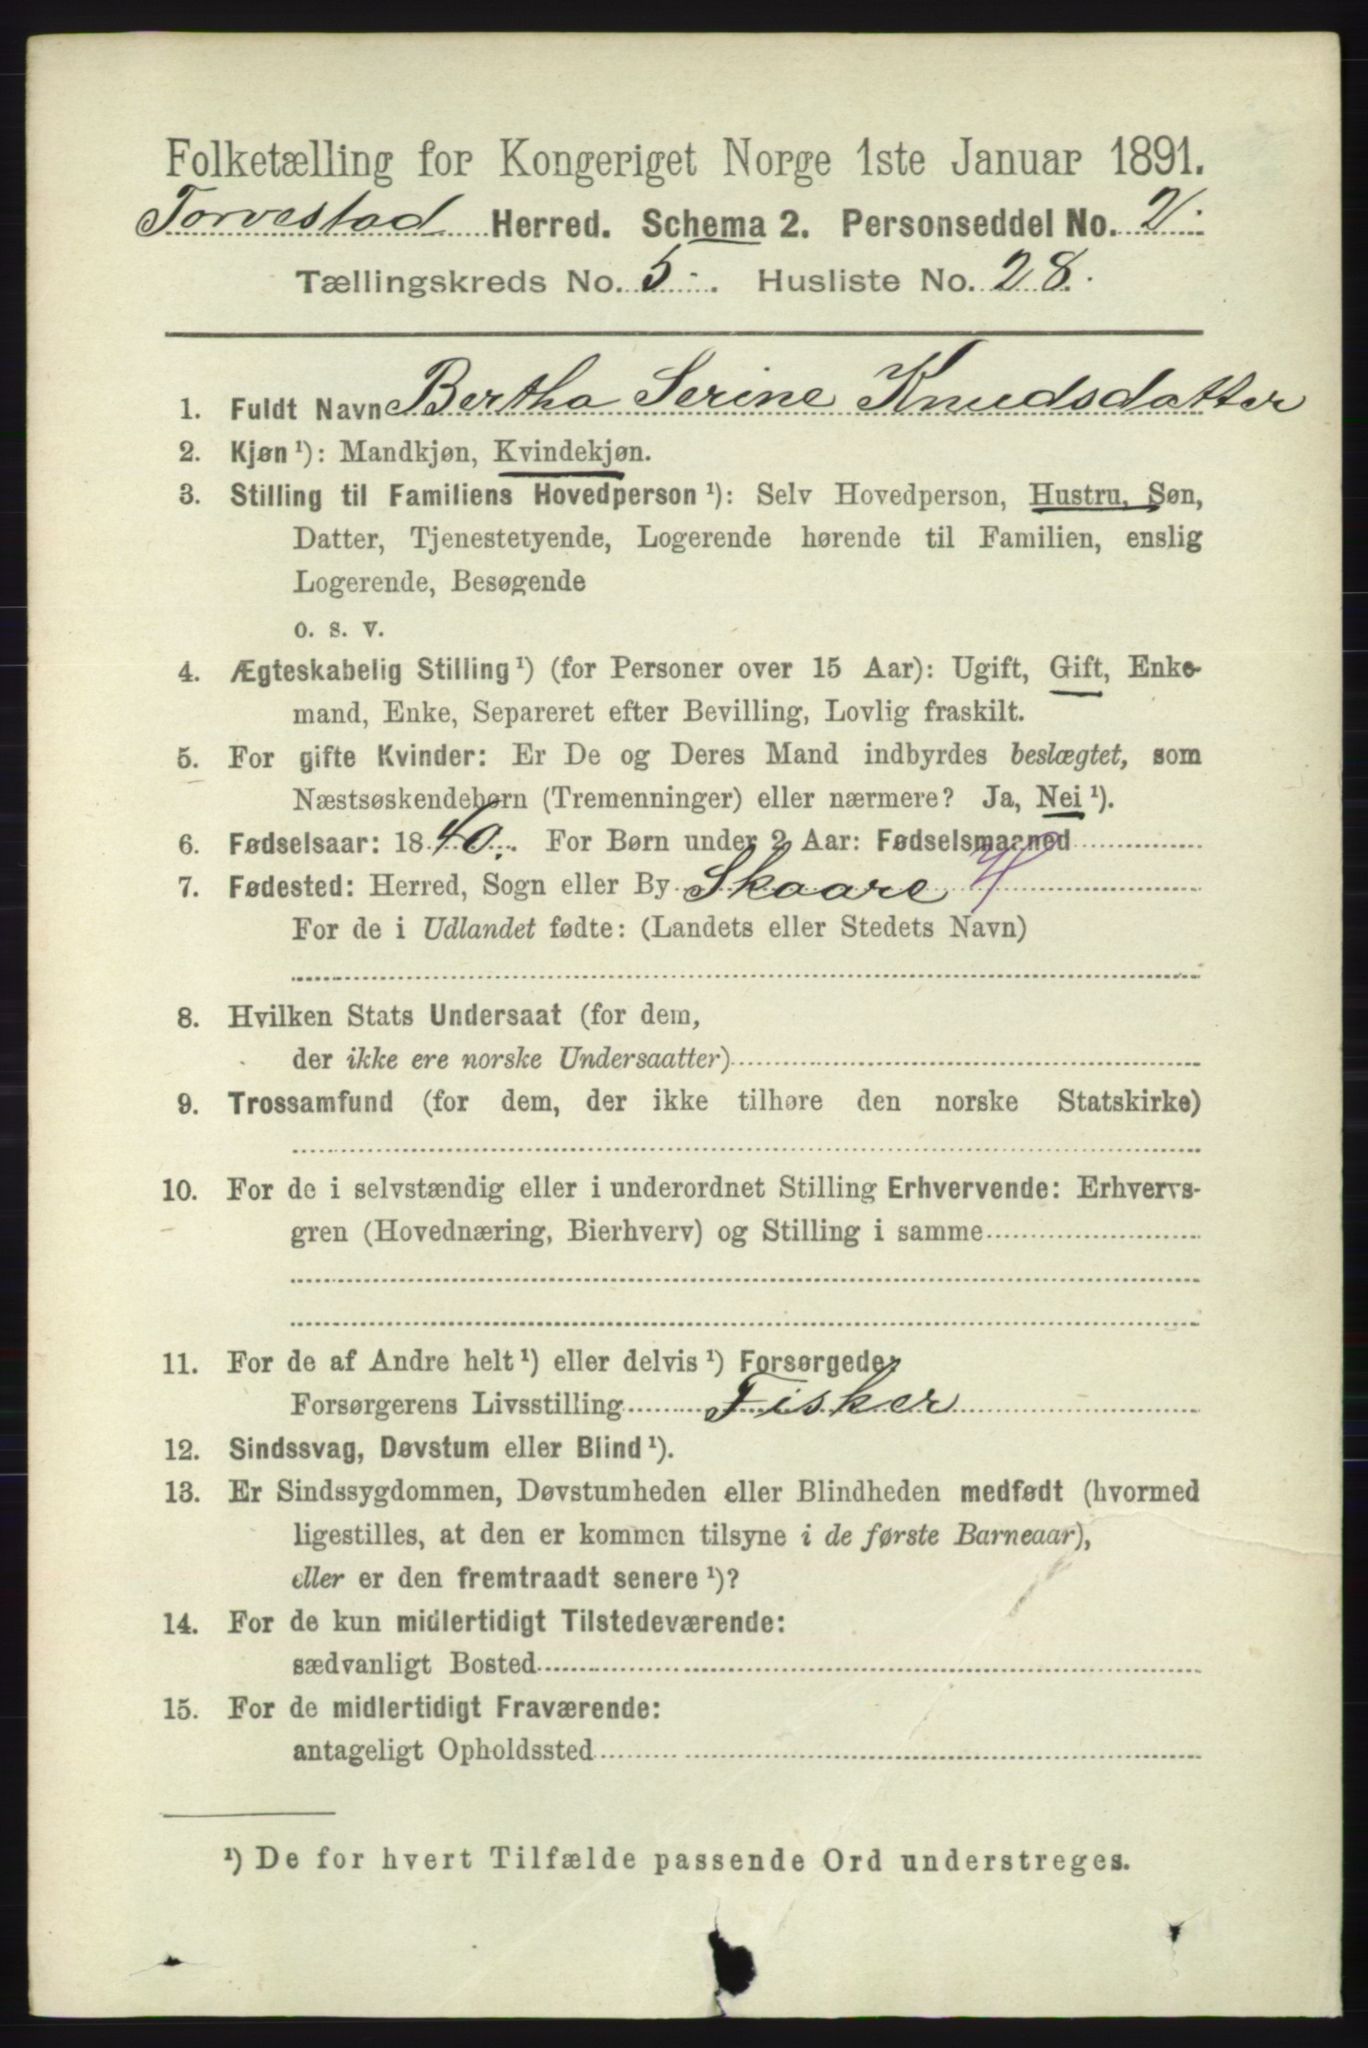 Folketælling for Kongeriget Norge 1ste Januar 1891.
Torvestad Herred. Schema 2. Personseddel No. 2.
Tællingskreds No. 5. Husliste No. 28.
1. Fuldt Navn Bertha Serine Knudsdatter
2. Kjøn ¹): Mandkjøn, Kvindekjøn.
3. Stilling til Familiens Hovedperson ¹): Selv Hovedperson, Hustru, Søn,
Datter, Tjenestetyende, Logerende hørende til Familien, enslig
Logerende, Besøgende
o. s. v.
4. Ægteskabelig Stilling ¹) (for Personer over 15 Aar): Ugift, Gift, Enke-
mand, Enke, Separeret efter Bevilling, Lovlig fraskilt.
5. For gifte Kvinder: Er De og Deres Mand indbyrdes beslægtet, som
Næstsøskendebørn (Tremenninger) eller nærmere? Ja, Nei ¹).
6. Fødselsaar: 1840. For Børn under 2 Aar: Fødselsmaaned
7. Fødested: Herred, Sogn eller By Skaare
For de i Udlandet fødte: (Landets eller Stedets Navn)
8. Hvilken Stats Undersaat (for dem,
der ikke ere norske Undersaatter)
9. Trossamfund (for dem, der ikke tilhøre den norske Statskirke)
10. For de i selvstændig eller i underordnet Stilling Erhvervende: Erhvervs-
gren (Hovednæring, Bierhverv) og Stilling i samme
11. For de af Andre helt ¹) eller delvis ¹) Forsørgede,
Forsørgerens Livsstilling Fisker
12. Sindssvag, Døvstum eller Blind ¹).
13. Er Sindssygdommen, Døvstumheden eller Blindheden medfødt (hvormed
ligestilles, at den er kommen tilsyne i de første Barneaar),
eller er den fremtraadt senere ¹)?
14. For de kun midlertidigt Tilstedeværende:
sædvanligt Bosted
15. For de midlertidigt Fraværende:
antageligt Opholdssted
¹) De for hvert Tilfælde passende Ord understreges.